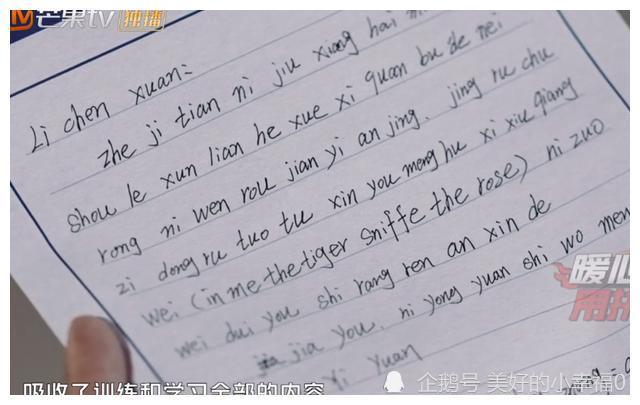 芒果TV 独播
Li chen xuan:
zhe ji tian ni jiu xiang hai
shou le xun lian he xue xi quan bu de nei
rong ni wen rou jian yi an jing. jing ru chu
zi dong ru tuo tu xin you meng hu xi xiu qiang
wei (in me the tiger sniffe the rose) ni zuo
wei dui you shi rang ren an xin de
jia you. ni yong yuan shi wo men
yi yuan
暖心
吸收了训练和学习全部的内容
企鹅号 美好的小幸福0